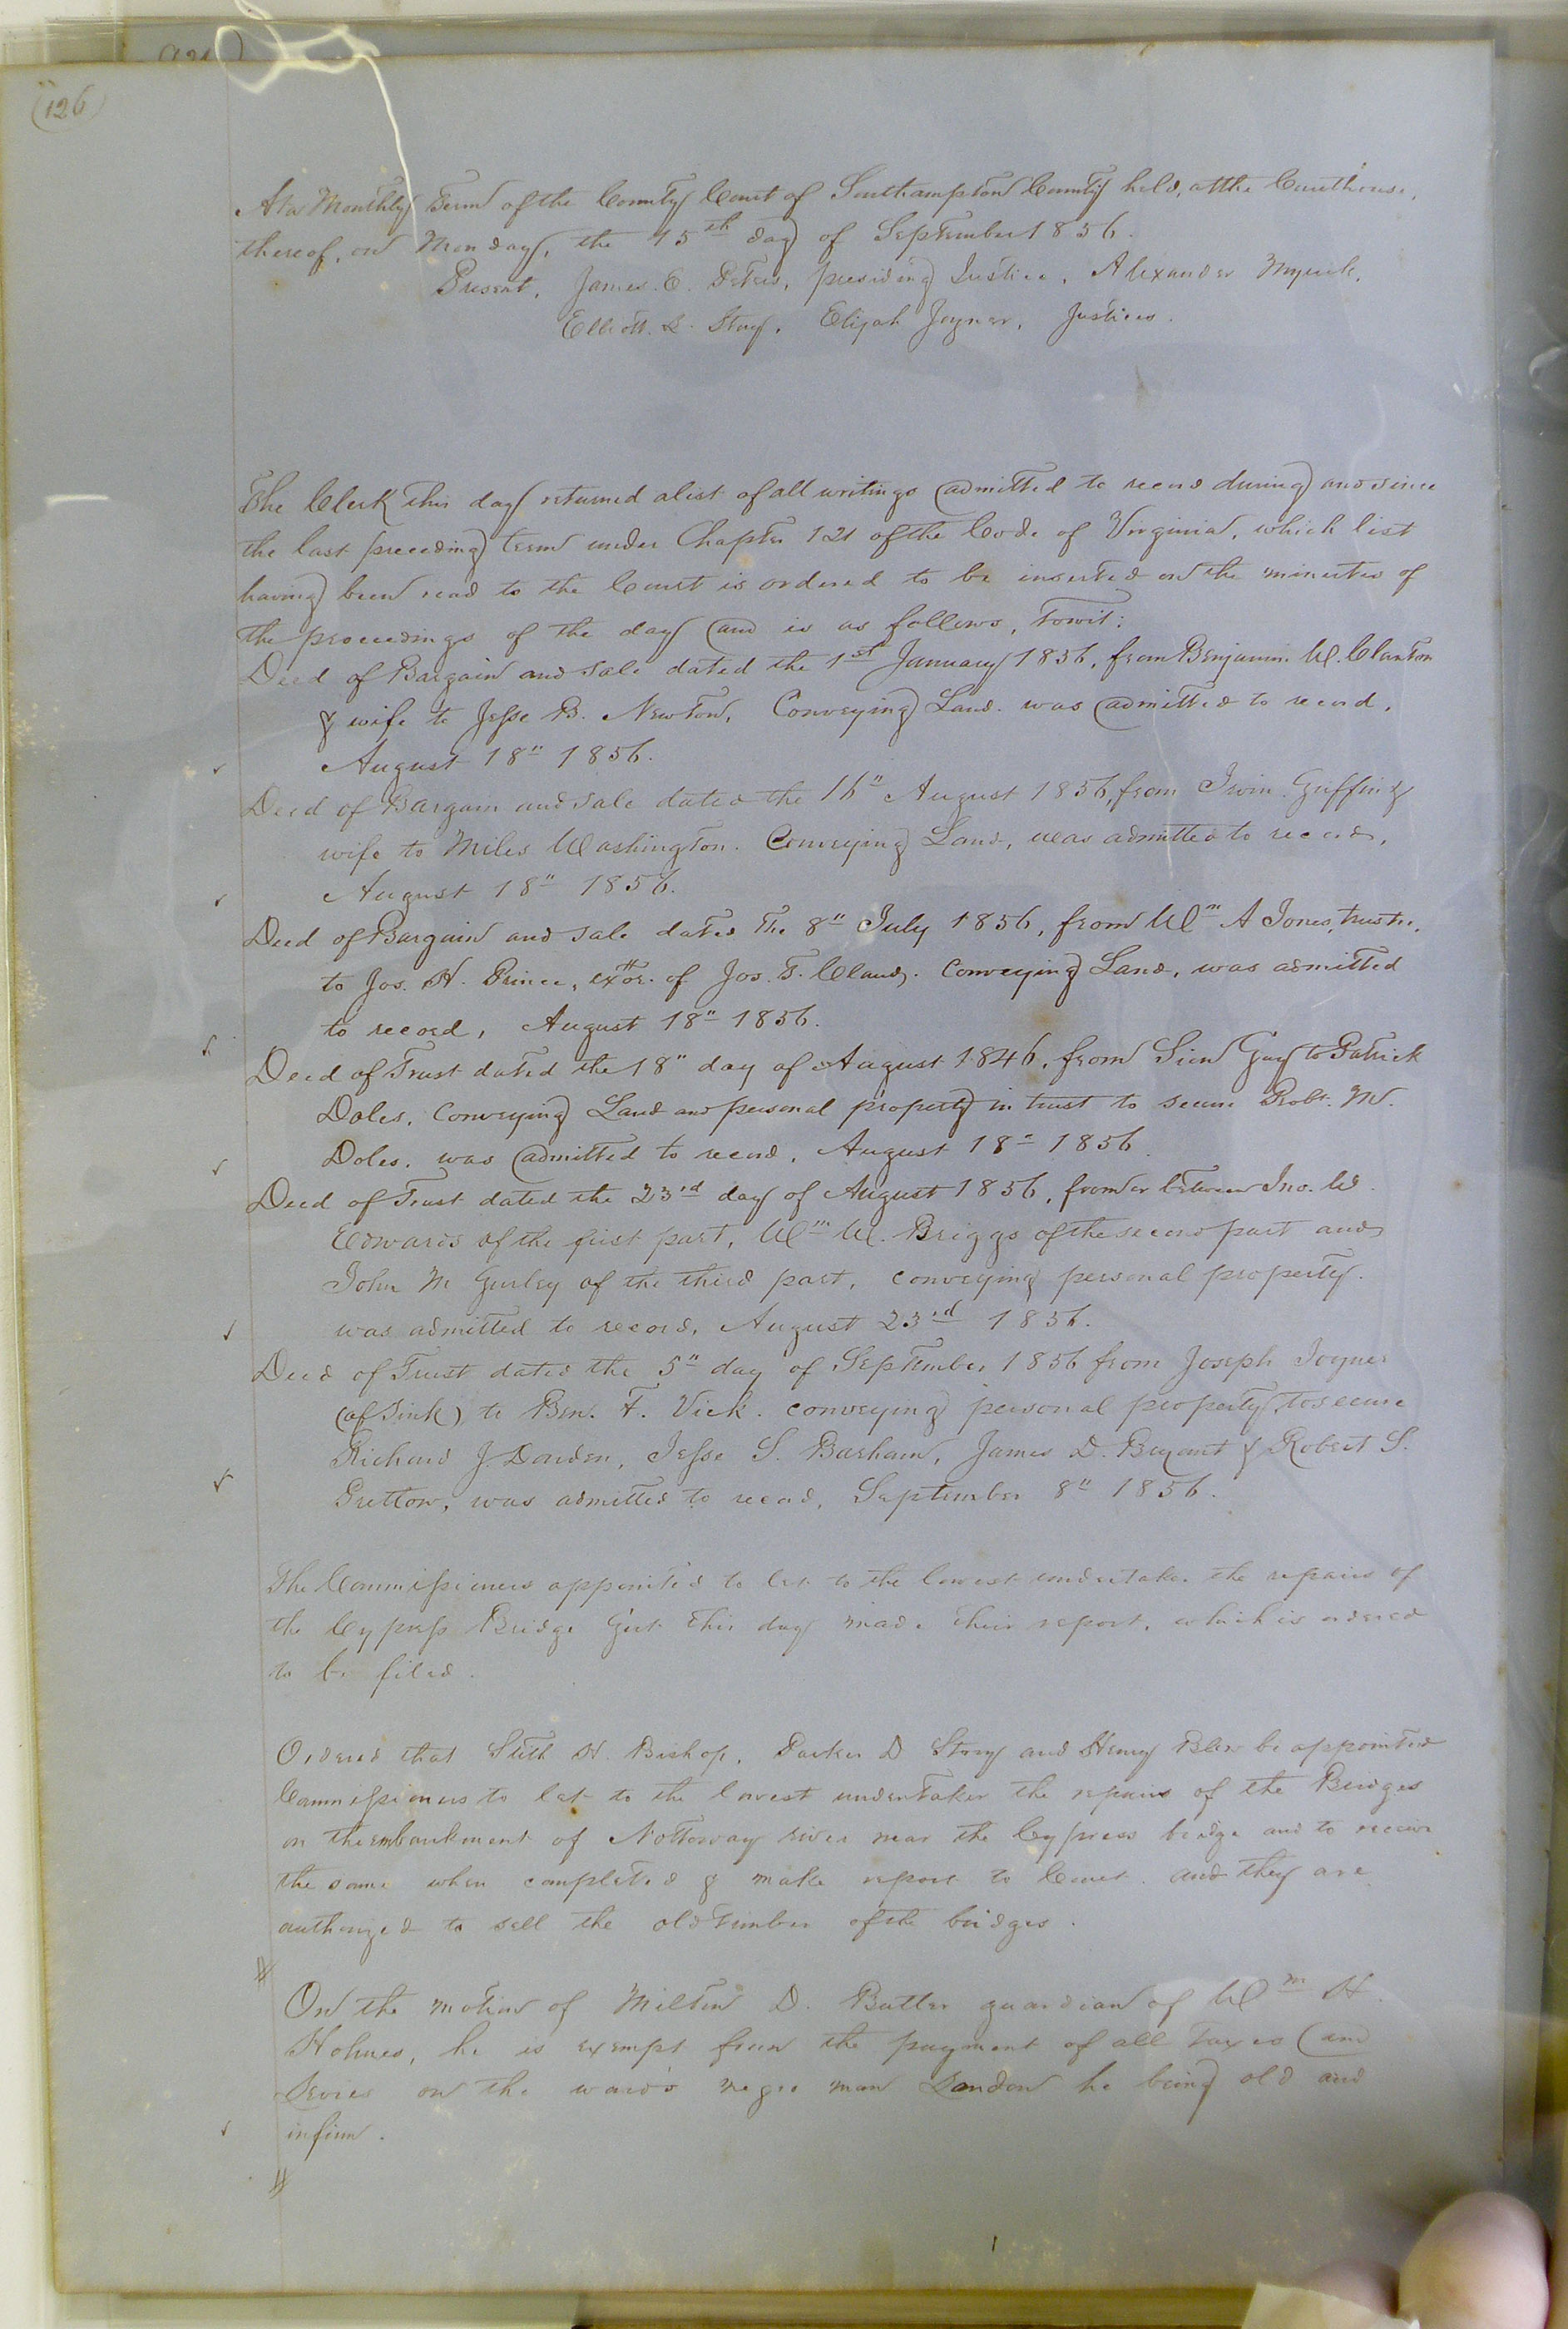 (126)
At a Monthly Term of the County Court of Southampton County held, at the Courthouse,
thereof, on Monday, the 15th day of September 1856.
Present, James. E. Peters, presiding Justice, Alexander Myrick,
Elliott. L. Story, Elijah Joyner, Justices.
The Clerk this day returned a list of all writings admitted to record during and since
the last preceding term under Chapter 121 of the Code of Virginia, which list
having been read to the Court is ordered to be inserted on the minutes of
the proceedings of the day and is as follows, Towit:
Deed of Bargain and Sale dated the 1st January 1856, from Benjamin W. Clanton
& wife to Jesse B. Newton, Conveying Land. was admitted to record,
August 18" 1856.
Deed of Bargain and Sale dated the 16" August 1856, from Irvin Griffin &
wife to Miles Washington. Conveying Land, was admitted to record,
August 18" 1856.
Deed of Bargain and Sale dated the 8" July 1856, from Wm A Jones, trustee,
to Jos. H. Prince, exor. of Jos. T. Claud. Conveying Land, was admitted
to record, August 18" 1856.
Deed of Trust dated the 18" day of August 1846, from Sion Gay to Patrick
Doles, Conveying Land and personal property in trust to secure Robt. M.
Doles, was admitted to record, August 18" 1856.
Deed of Trust dated the 23rd day of August 1856, from or between Jno. W.
Edwards of the first part, Wm W. Briggs of the second part and
John M Gurley of the third part, conveying personal property.
was admitted to record, August 23rd 1856.
Deed of Trust dated the 5" day of September 1856 from Joseph Joyner
(of Jink) to Ben. F. Vick. conveying personal property, to secure
Richard J Darden, Jesse S. Barham, James D. Bryant & Robert S.
Pretlow, was admitted to record, September 8" 1856.
The Commissioners appointed to let to the lowest undertaker the repairs of
the Cypress Bridge Gut this day made their report, which is ordered
to be filed.
Ordered that Sith H. Bishop, Parker D Story and Henry Blow be appointed
Commissioners to let to the lowest undertaker the repairs of the Bridges
on the embankment of Nottoway river near the Cypress bridge and to receive
the same when completed & make report to Court. and they are
authorized to sell the old timber of the bridges.
On the motion of Milton D. Butler guardian of Wm H.
Holmes, he is exempt from the payment of all Taxes and
Levies on the ward's negro man London he being old and
infirm.